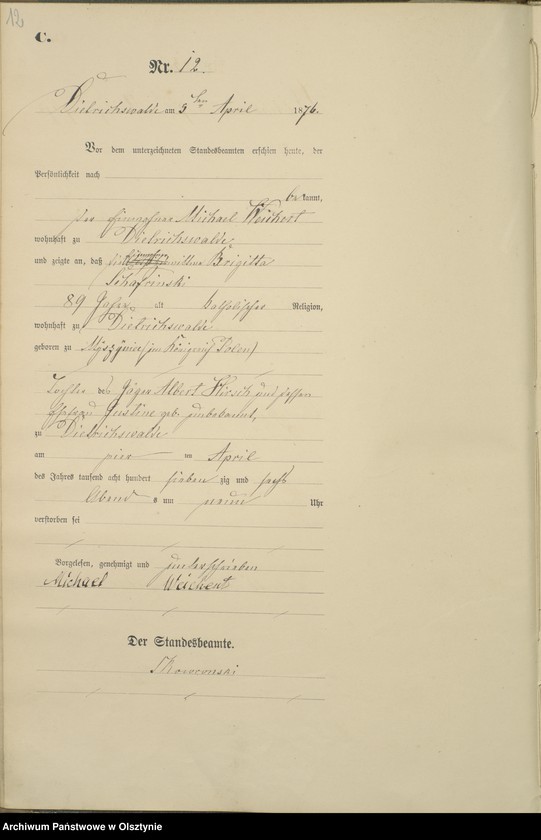 12
C.
Nr. 12.
Dietrichswalde am 5ten April 1876.
Vor dem unterzeichneten Standesbeamten erschien heute, der
Persönlichkeit nach
be kannt,
der Einwohner Michael Weichert
wohnhaft zu Dietrichswalde
und zeigte an, daß die wittwe Brigitta
Schafrinski
89 Jahre alt katholischer Religion,
wohnhaft zu Dietrichswalde
geboren zu im Königreich Polen
Tochter des Jäger Albert Hirsch und dessen
Ehefrau Justine geb. unbekannt,
zu Dietrichswalde
am vier ten April
des Jahres tausend acht hundert sieben zig und sechs
Abend s um neun Uhr
verstorben sei
Vorgelesen, genehmigt und unterschrieben
Michael Weichert
Der Standesbeamte.
Archiwum Państwowe w Olsztynie